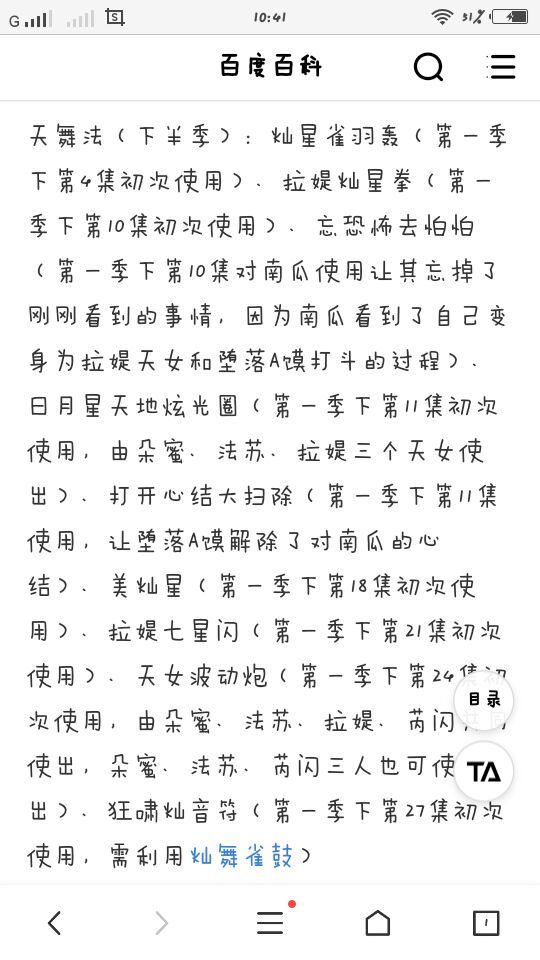 G 10:41 31%
百度百科
天舞法（下半季）：灿星雀羽轰（第一季
下第4集初次使用）、拉媞灿星拳（第一
季下第10集初次使用）、忘恐怖去怕怕
（第一季下第10集对南瓜使用让其忘掉了
刚刚看到的事情，因为南瓜看到了自己变
身为拉媞天女和堕落A馍打斗的过程）、
日月星天地炫光圈（第一季下第11集初次
使用，由朵蜜、法苏、拉媞三个天女使
出）、打开心结大扫除（第一季下第11集
使用，让堕落A馍解除了对南瓜的心
结）、美灿星（第一季下第18集初次使
用）、拉媞七星闪（第一季下第21集初次
使用）、天女波动炮（第一季下第24集初
次使用，由朵蜜、法苏、拉媞、芮闪共同
使出，朵蜜、法苏、芮闪三人也可使
出）、狂啸灿音符（第一季下第27集初次
使用，需利用灿舞雀鼓）
目录
TA
1